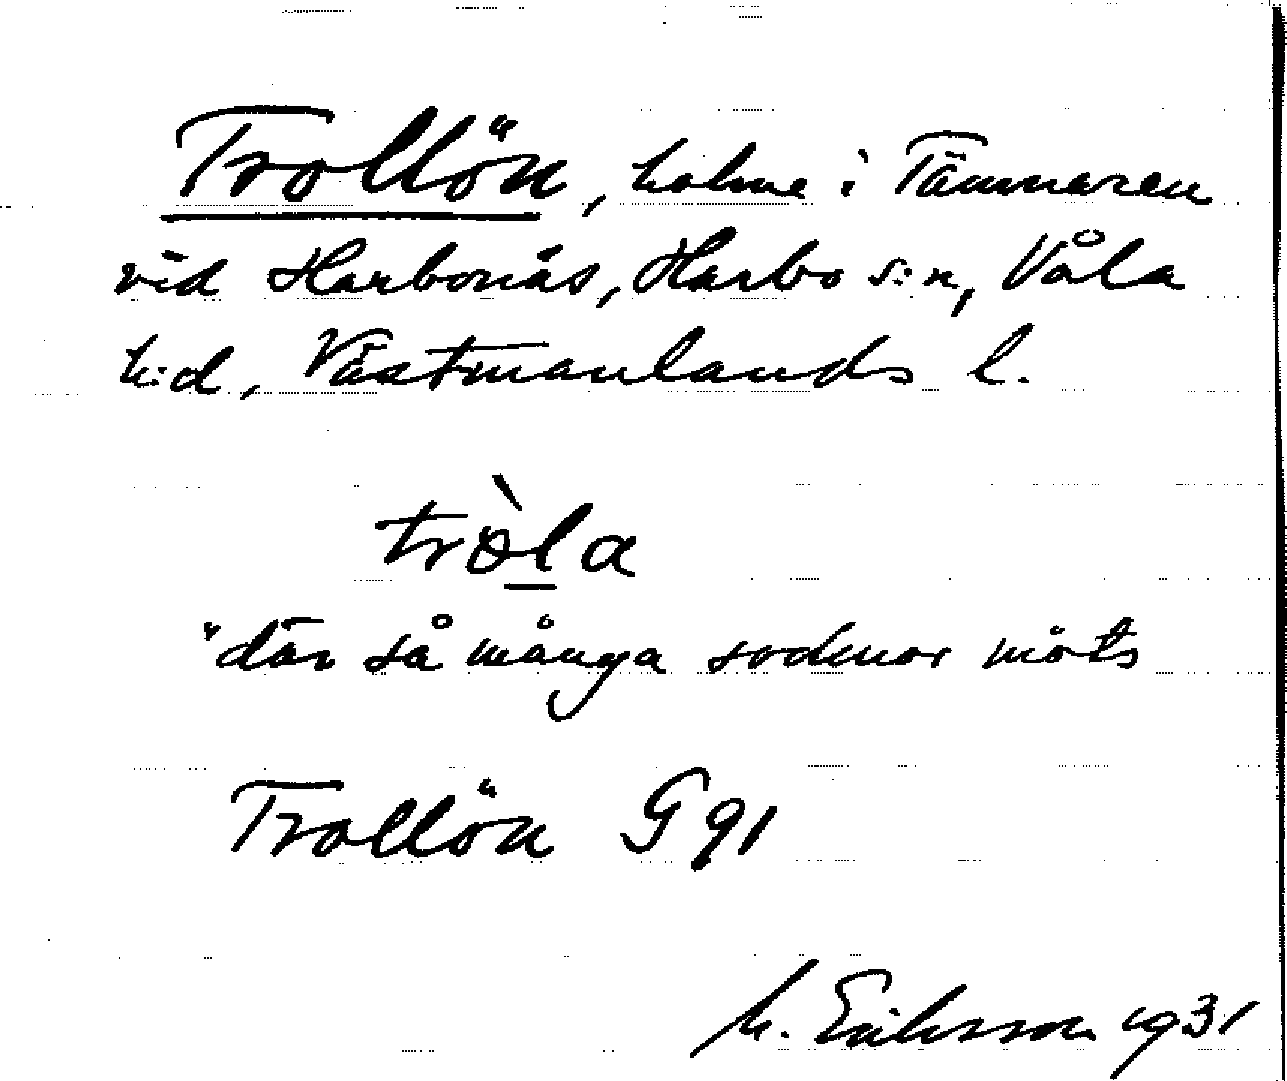 Trollön, holme i Tämnaren
vid Harbonäs, Harbo s:n, Våla
h:d, Västmanlands l.
tròl̲a
"där så många socknar möts
Trollön G 91
M. Eriksson 1931